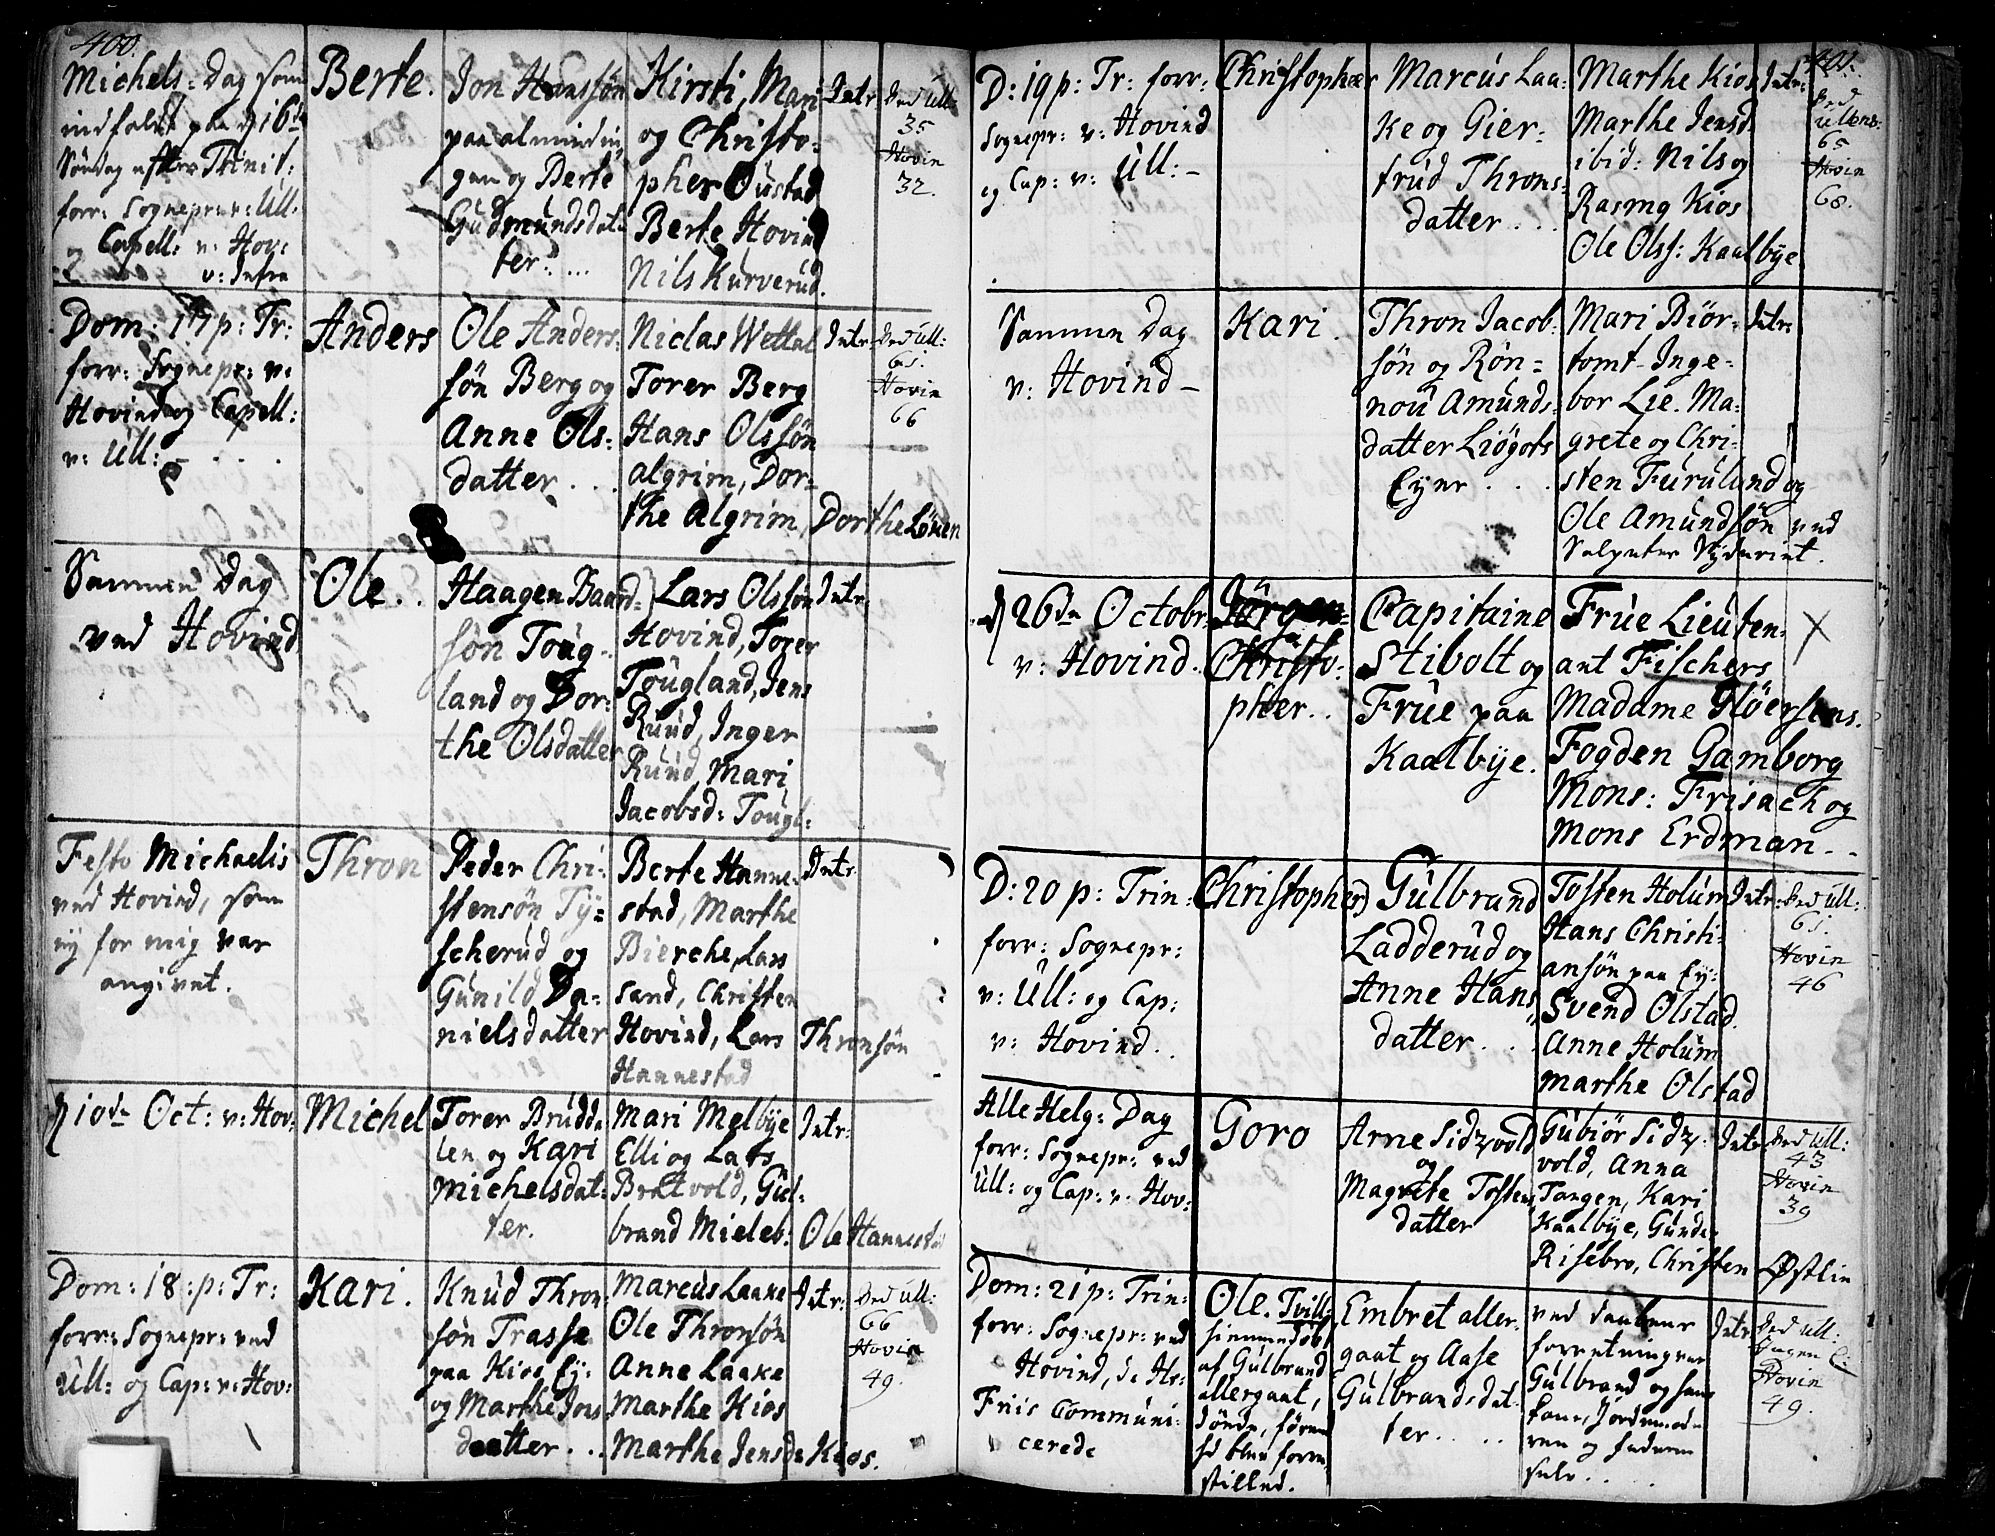 400.
Michels: Dag som
indfaldt paa d 16de
Søndag efter Trinit:
forr: Sognepr: v: Ull.
og Capell: v: Hov:
v: Intra
Berte.
Jon Hanssøn
paa almindin
gen og Berte
Gudmundsdat
ter. ...
Kirsti, Mari
og Christo-
pher Oustad
Berte Hovind
Nils Kurverud.
Intr
Ved Ull:
35
Hovin
32.
Dom: 17 p: Tr:
forr: Sognepr: v:
Hovind og Capell:
v: Ull: - . . .
Anders
Ole Anders-
søn Berg og
Anne Ols-
datter . . .
Niclas Wettal
Torer Berg
Hans Olssøn
algrim, Dor-
the Algrim, Dorthe Løken
Intr
Ved Ull:
65.
Hovin
66
Sammen Dag
ved Hovind
Ole. .
Haagen Baard-
søn Toug-
land og Dor-
the Olsdatter
Lars Olssøn
Hovind, Torer
Tougland, Jens
Ruud, Inger
Ruud, Mari
Jacobsd: Tougl:
Intr
Festo Michaelis
ved Hovind, som
ey for mig var
angivet.
Thron
Peder Chri-
stensøn Ty-
scherud og
Gunild Da-
nielsdatter
Berte Hanne-
stad, Marthe
Bierche, Lars
Sand, Christen
Hovind, Lars Thronsøn
Hannestad
Intr
d 10de Oct: v: Hov:
Michel
Torer Brudda
len og Kari
Michelsdat-
ter.
Mari Melbye
Elli og Lars
Bratvold, Gul-
brand Mieleb: Ole Hannestad
Intr:
Dom: 18: p: Tr:
forr: Sognepr: ved
Ull: og Cap: v: Hov:
Kari.
Knud Thron-
søn Trasse
paa Kios Ey:
og Marthe Jens
datter . .
Marcus Laake
Ole Thronsøn
Anne Laake
Marthe Kios
Marthe Jensd: Kios.
Intr:
Ved Ull:
66
Hovin
49.
401.
D: 19 p: Tr: forr:
Sognepr: v: Hovind
og Cap: v: Ull: -
Christopher
Marcus Laa-
ke og Gier-
trud Throns-
datter . . .
Marthe Kios
Marthe Jensd.
ibid: Nils og
Rasmg Kios
Ole Olss: Kaalbye
Intr:
Ved
Ullens:
65
Hovin
68.
Sammen Dag
v: Hovind -
Kari.
Thron Jacob-
søn og Røn-
nou Amunds-
datter Liøgots
Eyer . . .
Mari Biør-
tomt Inge-
bor Lie. Ma-
grete og Chri-
sten Furulund og
Ole Amundsøn ved
Salpeter Syderiet.
Intr:
d 26de Octobr:
v: Hovind.
Jørgen
Christo-
pher. .
Capitaine
Stibolt og
Frue paa
Kaalbye.
Frue Lieuten-
ant Fischers
Madame Gløersens.
Fogden Gamborg
Mons: Frisach og
Mons Erdman . .
X
D: 20 p: Trin:
forr: Sognepr:
v: Ull: og Cap:
v: Hovind. .
Christopher
Gulbrand
Ladderud og
Anne Hans
datter. . .
Tosten Holum
Hans Christi-
ansøn paa Ey:
Svend Olstad
Anne Holum
Marthe Olstad
Intr:
Ved Ull:
65.
Hovin
46
Alle Helg: Dag
forr: Sognepr: ved
Ull: og Cap: v: Hov:
Goro
Arne Sidzvold
og
Magrete Tosten
datter
Gubiør Sidz-
vold, Anna
Tangen, Kari
Kaalbye, Gunde
Risebro, Christen Østlin
Intr
Ved Ull:
43
Hovin
39
Dom: 21 p: Trin:
forr: Sognepr: ved
Hovind,
Communi-
cerede
Ole. Tvill:
hiemmedøbt
af Gulbrand
allergaat,
døde, føren
hd blev frem
stilled.
Embret aller-
gaat og Aase
Gulbrandsdat-
ter . . . .
ved daabens
forretning var
Gulbrand og hans
kone, Jordemode-
ren og faderen
selv . .
Intr
Ved Ull:
Ingen
Hovin
49.